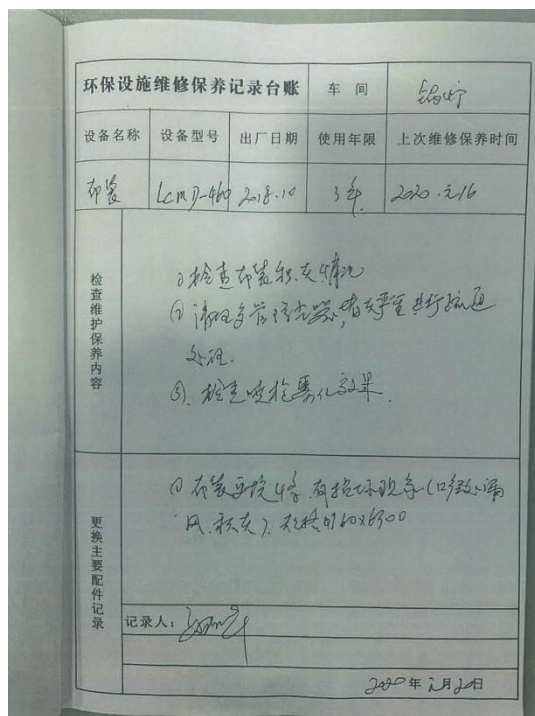 环保设施维修保养记录台账 车间 锅炉
设备名称 设备型号 出厂日期 使用年限 上次维修保养时间
布袋 LCMD-460 2018.10 3年 2020.元.16
检查维护保养内容
①检查布袋积灰情况
②清理多管除尘器,堵灰严重进行疏通
处理.
③.检查喷枪雾化效果.
更换主要配件记录
①布袋更换4条,有损坏现象(口微漏
风.积灰).规格
记录人:
2020年 月20日